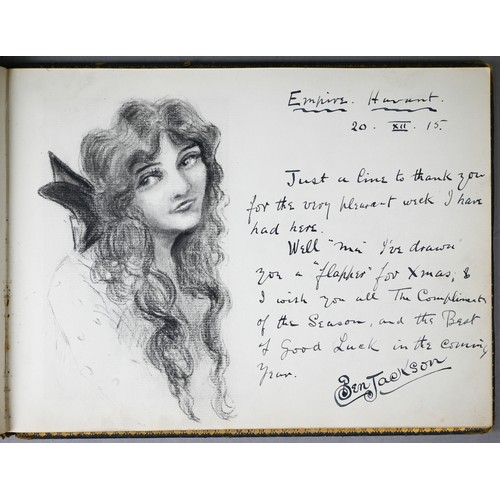 Empire. Havant.
20. XII. 15.
Just a line to thank you
for the very pleasant week I have
had here.
Well "Ma" I've drawn
you a "flapper" for Xmas, &
I wish you all The Compliments
of the Season, and the Best
of Good Luck in the coming
Year.
Ben Jackson